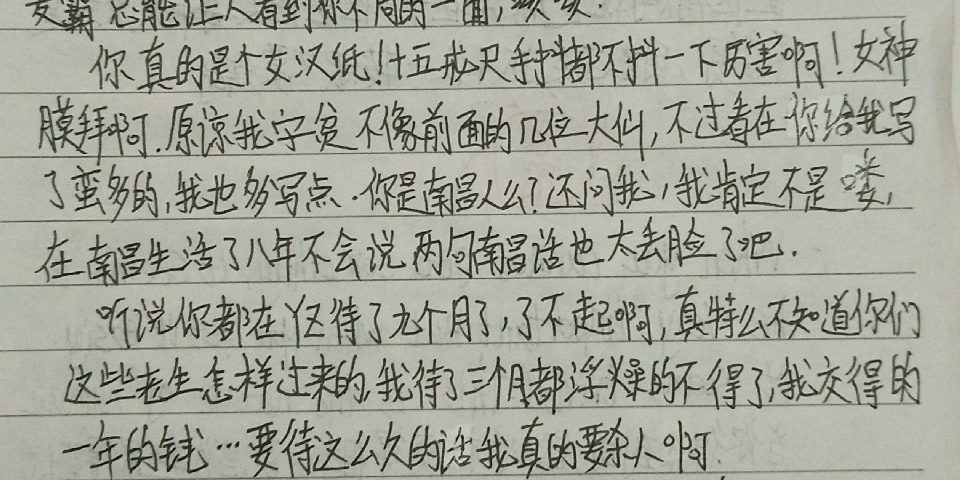 总能让人看到你不同的一面,咳咳.
你真的是个女汉纸!十五戒尺手抖都不抖一下厉害啊!女神
膜拜啊.原谅我字贫不像前面的几位大仙,不过看在你给我写
了蛮多的,我也多写点.你是南昌人么?还问我,我肯定不是喽,
在南昌生活了八年不会说两句南昌话也太丢脸了吧.
听说你都在YZ待了九个月了,了不起啊,真特么不知道你们
这些老生怎样过来的,我待了三个月都浮燥的不得了,我交得的
一年的钱…要待这么久的话我真的要杀人啊.